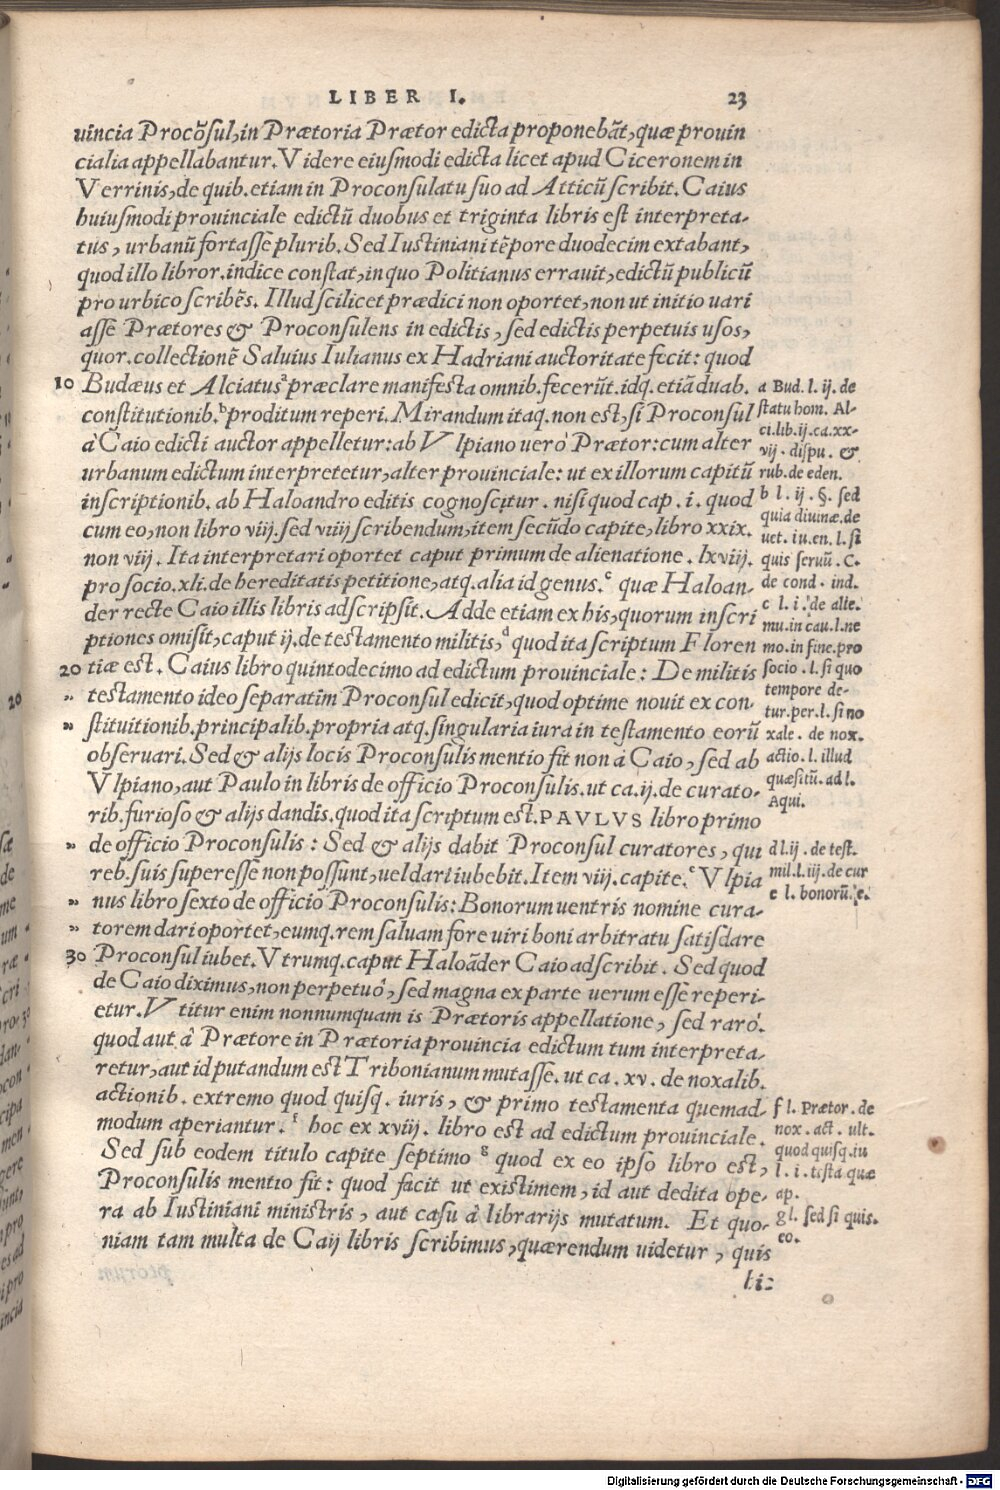 LIBER I. 23
uincia Procõsul, in Prætoria Prætor edicta proponebãt, quæ prouin
cialia appellabantur. Videre eiusmodi edicta licet apud Ciceronem in
Verrinis, de quib. etiam in Proconsulatu suo ad Atticũ scribit. Caius
huiusmodi prouinciale edictũ duobus et triginta libris est interpreta-
tus, urbanũ fortasse plurib. Sed Iustiniani tẽpore duodecim extabant,
quod illo libror. indice constat, in quo Politianus errauit, edictũ publicũ
pro urbico scribẽs. Illud scilicet prædici non oportet, non ut initio uari
asse Prætores & Proconsulens in edictis, sed edictis perpetuis usos,
quor. collectionẽ Saluius Iulianus ex Hadriani auctoritate fecit: quod
10 Budæus et Alciatus a præclare manifesta omnib. fecerũt. idq. etiã duab.
constitutionib. b proditum reperi. Mirandum itaq. non est, si Proconsul
à Caio edicti auctor appelletur: ab Vlpiano uerò Prætor: cum alter
urbanum edictum interpretetur, alter prouinciale: ut ex illorum capitũ
inscriptionib. ab Haloandro editis cognoscitur. nisi quod cap. i. quod
cum eo, non libro viij. sed viiij scribendum, item secũdo capite, libro xxix.
non viij. Ita interpretari oportet caput primum de alienatione. lxviij.
pro socio. xli. de hereditatis petitione, atq. alia id genus. c quæ Haloan-
der recte Caio illis libris adscripsit. Adde etiam ex his, quorum inscri
ptiones omisit, caput ij. de testamento militis, d quod ita scriptum Floren
20 tiæ est. Caius libro quintodecimo ad edictum prouinciale: De militis
„ testamento ideo separatim Proconsul edicit, quod optime nouit ex con-
„ stituitionib. principalib. propria atq. singularia iura in testamento eorũ
obseruari. Sed & alijs locis Proconsulis mentio fit non à Caio, sed ab
Vlpiano, aut Paulo in libris de officio Proconsulis. ut ca. ij. de curato-
rib. furioso & alijs dandis. quod ita scriptum est. PAVLVS libro primo
„ de officio Proconsulis: Sed & alijs dabit Proconsul curatores, qui
reb. suis superesse non possunt, uel dari iubebit. Item viij. capite. e Vlpia
„ nus libro sexto de officio Proconsulis: Bonorum uentris nomine cura-
„ torem dari oportet, eumq. rem saluam fore uiri boni arbitratu satisdare
30 Proconsul iubet. Vtrumq. caput Haloãder Caio adscribit. Sed quod
de Caio diximus, non perpetuò, sed magna ex parte uerum esse reperi-
etur. Vtitur enim nonnumquam is Prætoris appellatione, sed rarò.
quod aut à Prætore in Prætoria prouincia edictum tum interpreta-
retur, aut id putandum est Tribonianum mutasse. ut ca. xv. de noxalib.
actionib. extremo quod quisq. iuris, & primo testamenta quemad-
modum aperiantur. f hoc ex xviij. libro est ad edictum prouinciale.
Sed sub eodem titulo capite septimo g quod ex eo ipso libro est,
Proconsulis mentio fit: quod facit ut existimem, id aut dedita ope-
ra ab Iustiniani ministris, aut casu à librarijs mutatum. Et quo-
niam tam multa de Caij libris scribimus, quærendum uidetur, quis
hi:
a Bud. l. ij. de
statu hom. Al-
ci. lib. ij. ca. xx-
vij. dispu. &
rub. de eden.
b l. ij. §. sed
quia diuinæ. de
uet. iu. en. l. si
quis seruũ. C.
de cond. ind.
c l. i. de alie.
mu. in cau. l. ne
mo. in fine. pro
socio. l. si quo
tempore de-
tur. per. l. si no
xale. de nox.
actio. l. illud
quæsitũ. ad l.
Aqui.
d l. ij. de test.
mil. l. iij. de cur
e l. bonorũ. e.
f l. Prætor. de
nox. act. ult.
quod quisq. iu
l. i. testa quæ
ap.
g l. sed si quis.
eo.
Digitalisierung gefördert durch die Deutsche Forschungsgemeinschaft - DFG